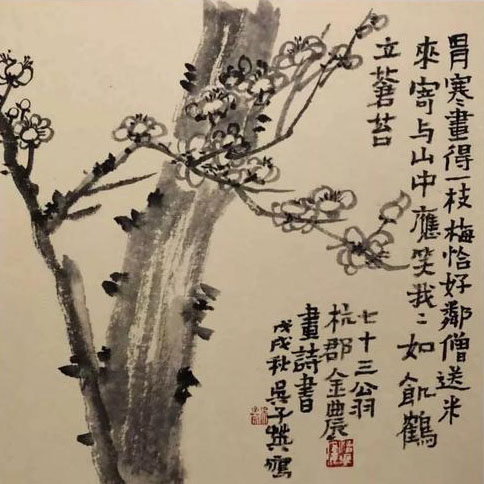 冐寒畫得一枝梅恰好鄰僧送米
來寄与山中應笑我〻如飢鶴
立蒼苔
七十三翁
杭郡金農
畫詩書
戊戌秋吳子